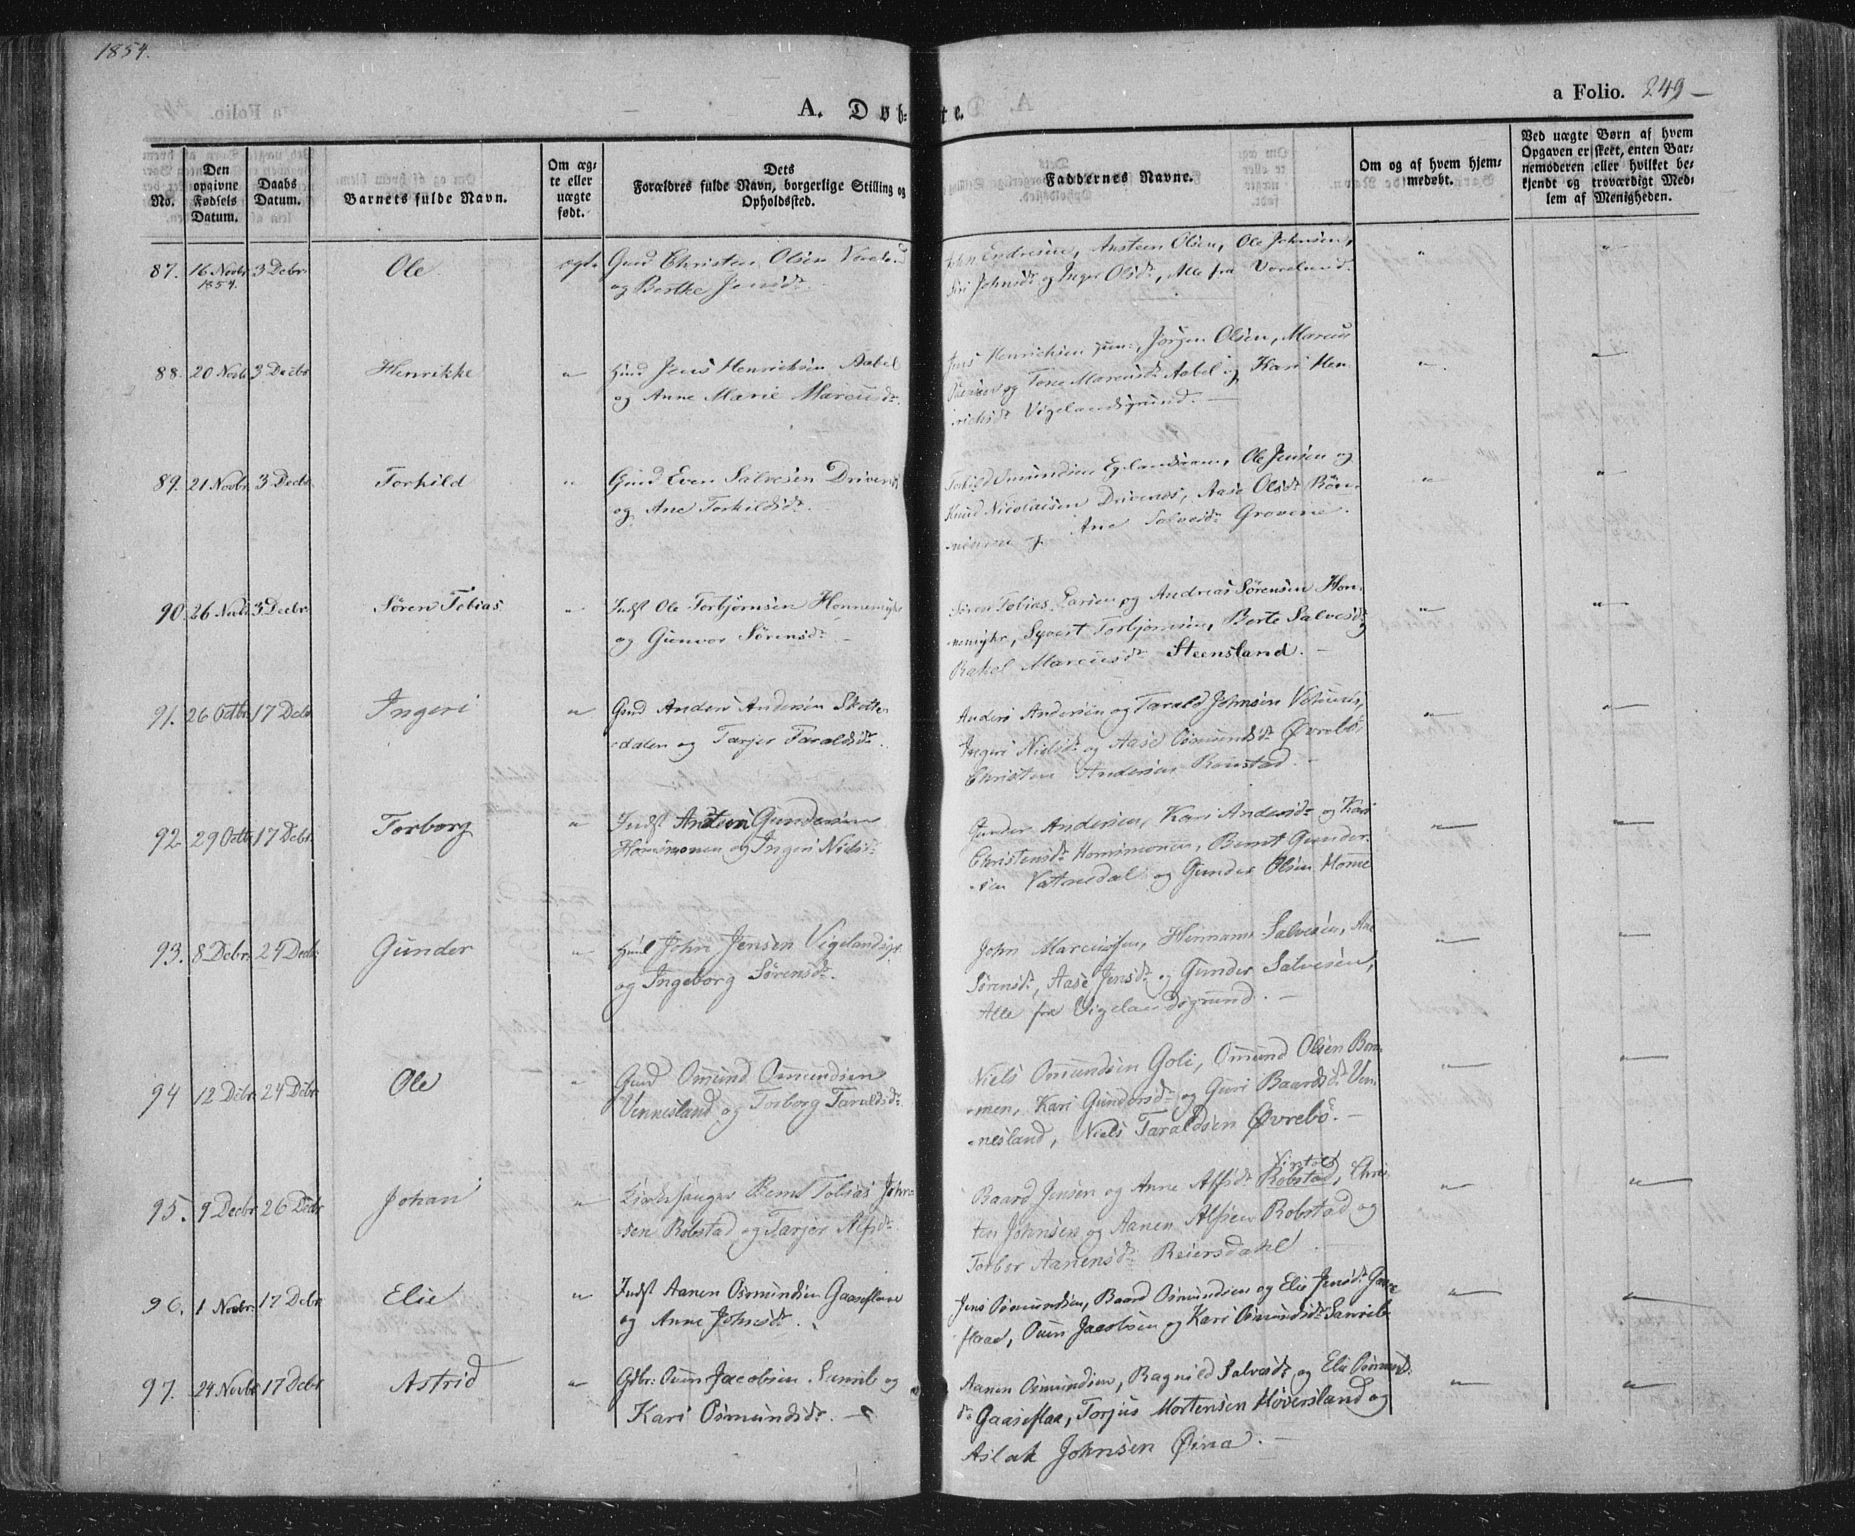 1854.
a Folio. 249
A. Døbte.
No.
Den opgivne Fødsels Datum.
Daabs Datum.
Barnets fulde Navn.
Om ægte eller uægte født.
Dets Forældres fulde Navn, borgerlige Stilling og Opholdssted.
Faddernes Navne.
Om og af hvem hjemmedøbt.
Ved uægte Børn af hvem Opgaven er skeet, enten Barnemoderen eller hvilket bekjendt og troværdigt Medlem af Menigheden.
87. 16 Novbr 1854. 3 Decbr Ole ægte Gmd Christen Olsen
og Berthe Jensdr.
Endresen, Ansteen Olsen, Ole Johnsen,
Siri Johnsdr og Inger Olsdr, Alle fra Voreland.
88. 20 Novb 3 Decbr Henrikke " Hmd Jens Henriksen Aabel
og Anne Marie Marcusdr.
Jens Henrichsen Jørgen Olsen, Marcus
og Tone Marcusdr Aabel og Kari Hen
richsdr Vigelandsgrund.
89. 21 Novbr 3 Decbr Torkild " Gmd Even Salvesen Drivenes
og Ane Torkildsdr.
Torkild Omundsen Ole Jensen og
Knud Nicolaisen Drivenes, Aase Olsdr
Ane Salvesdr Grovene.
90. 26 Novb 3 Decbr Søren Tobias " Indst Ole Torbjørnsen Honnemyhr
og Gunvor Sørensdr.
Søren Tobias Larsen og Andreas Sørensen Hon-
nemyhr, Syvert Torbjørnsen, Berte Salvesdr
Rakel Marcusdr Steensland.
91. 26 Octbr 17 Debr Ingeri " Gmd Anders Andersen Skotte-
dalen og Tarjer Taraldsdr.
Anders Andersen og Tarald Johnsen
Ingeri Nielsdr og Aase Osmundsdr Øvrebö,
Christen Andersen Röinstad.
92. 29 Octb 17 Debr. Torborg " Indst Ansteen Gundersen
Homsmonen og Ingeri Nielsdr
Gunder Andersen, Kari Andersdr og Kari
Christensdr Homsmonen, Bernt Gunder-
sen Vatnedal og Gunder Olsen Home
93. 8 Debr. 24 Decbr Gunder " Hmd John Jensen Vigelandsgr.
og Ingeborg Sørensdr.
John Marcussen, Hermann Salvesen,
Sørensdr, Aase Jensdr og Gunder Salvesen,
Alle fra Vigelandsgrund.
94 12 Debr 24 Debr Ole " Gmd Omund Omundsen
Vennesland og Torborg Taraldsdr.
Niels Omundsen Goli, Omund Olsen Bom-
men, Kari Gundersdr og Guri Baardsdr Ven-
nesland, Niels Taraldsen Øvrebö.
95. 9 Decbr 26 Decbr Johan " Kirkesanger Bernt Tobias John-
sen Robstad og Tarjer Alfsdr.
Baard Jensen og Anne Alfsdr Robstad, Chris-
ten Johnsen og Aanen Alfsen Robstad og
Torbor Aanensdr Reiersdahl
96. 1 Novbr. 17 Debr Elie " Indst Aanen Osmundsen Gaaseflaae
og Anne Johnsdr.
Jens Osmundsen, Baard Osmundsen og Elie Jensdr Gaase
flaae, Ouen Jacobsen og Kari Osmundsdr Sanrib
97. 24 Novbr 17 Debr Astrid " Gdbr: Ouen Jacobsen Sunrib og
Kari Osmundsdr.
Aanen Osmundsen, Ragnild Salvesdr og Elie Osmunds
dr Gaaseflaa, Torjus Mortensen Höversland og
Aslak Johnsen Øina.